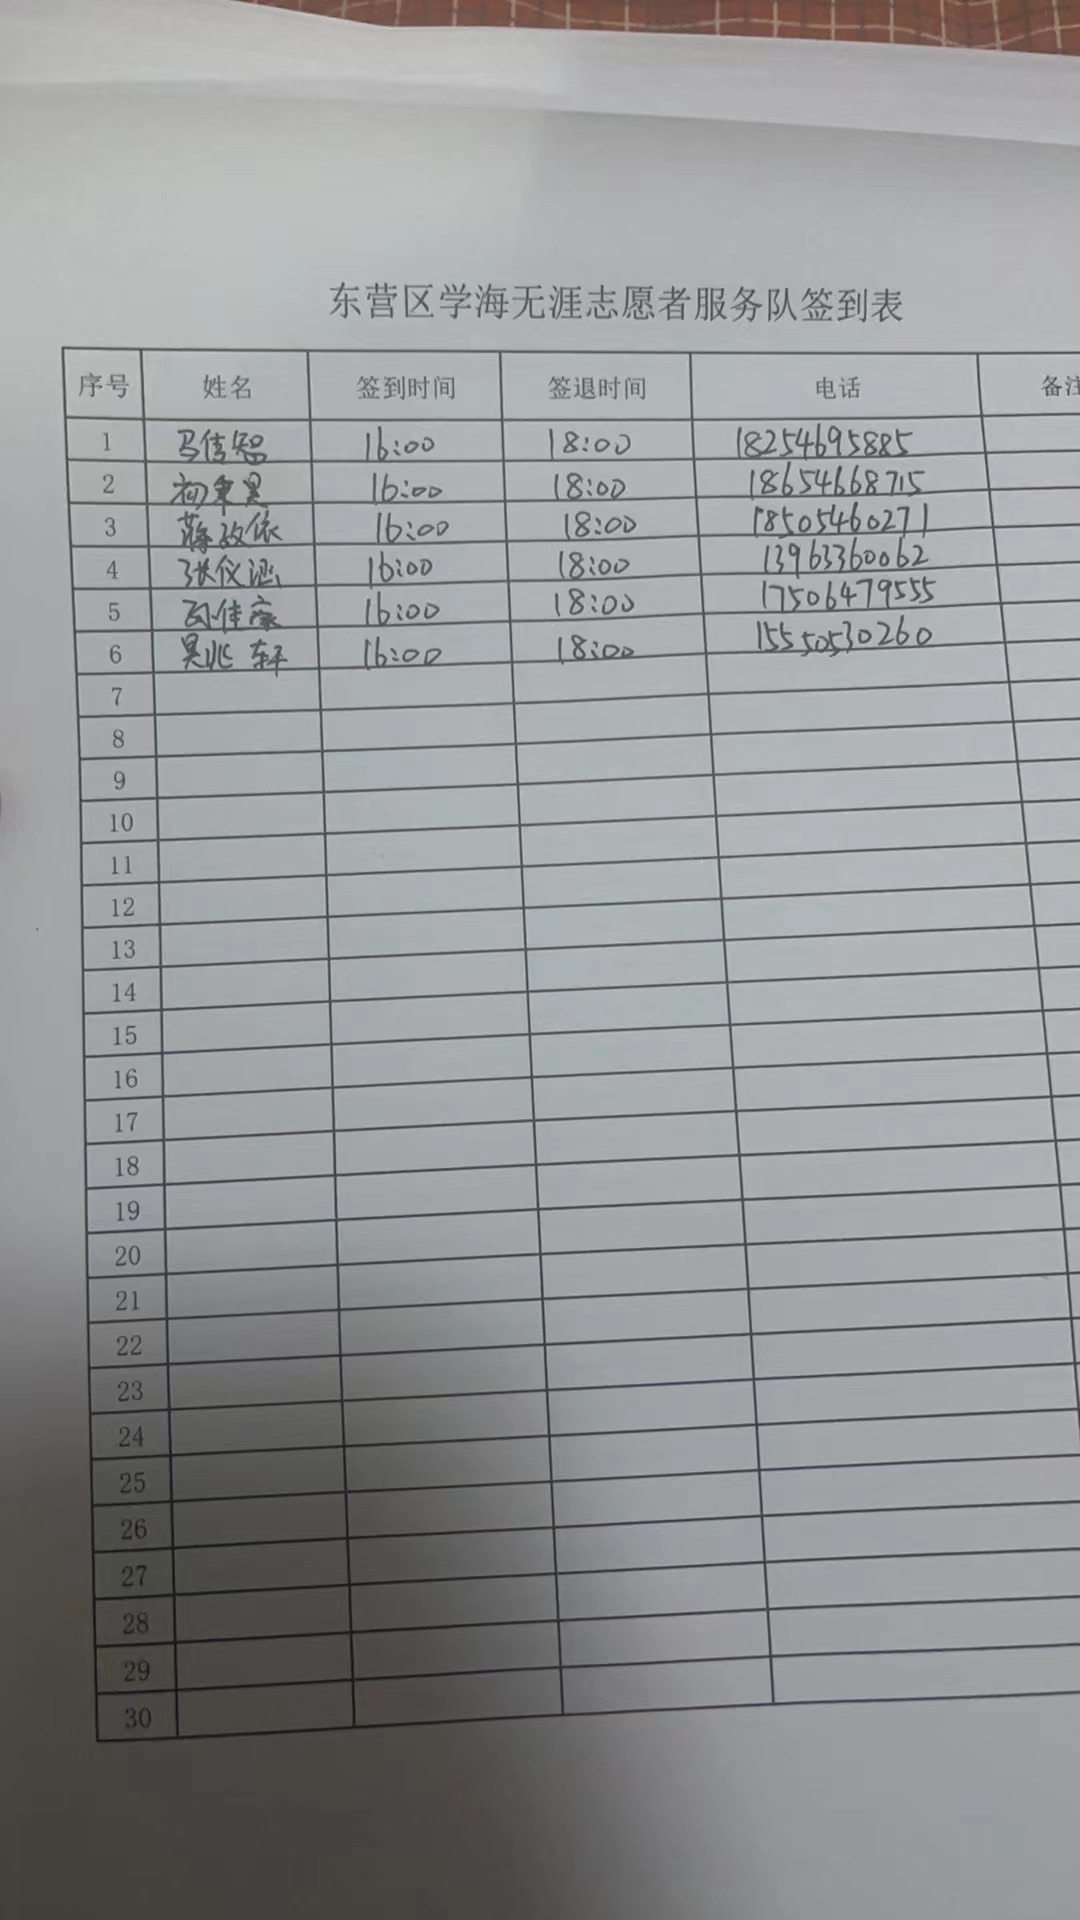 东营区学海无涯志愿者服务队签到表
序号 姓名 签到时间 签退时间 电话 备注
1 马信智 16:00 18:00 18254695885
2 初秉昊 16:00 18:00 18654668715
3 蒋政依 16:00 18:00 18505460271
4 张仪涵 16:00 18:00 13963360062
5 孙佳豪 16:00 18:00 17506479555
6 吴兆轩 16:00 18:00 15550530260
7
8
9
10
11
12
13
14
15
16
17
18
19
20
21
22
23
24
25
26
27
28
29
30